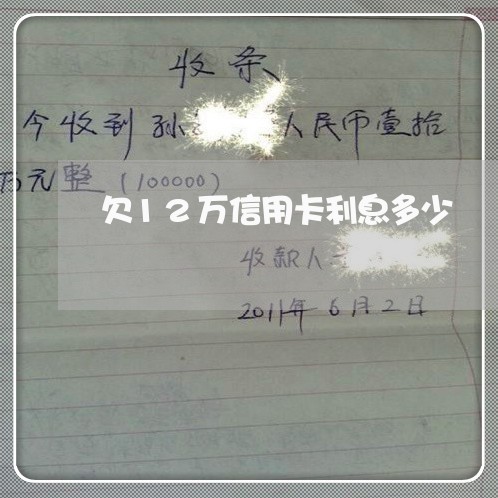 收条
今收到孙 人民币壹拾
万元整(100000)
欠12万信用卡利息多少
收款人
2011年6月2日